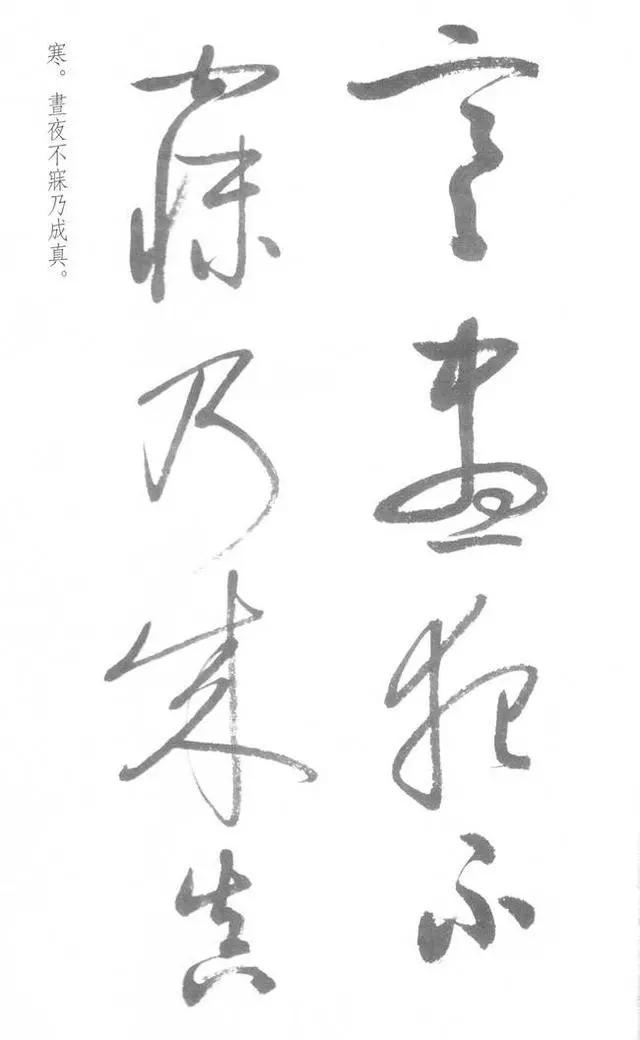 寒晝夜不
寐乃成真
寒。晝夜不寐乃成真。